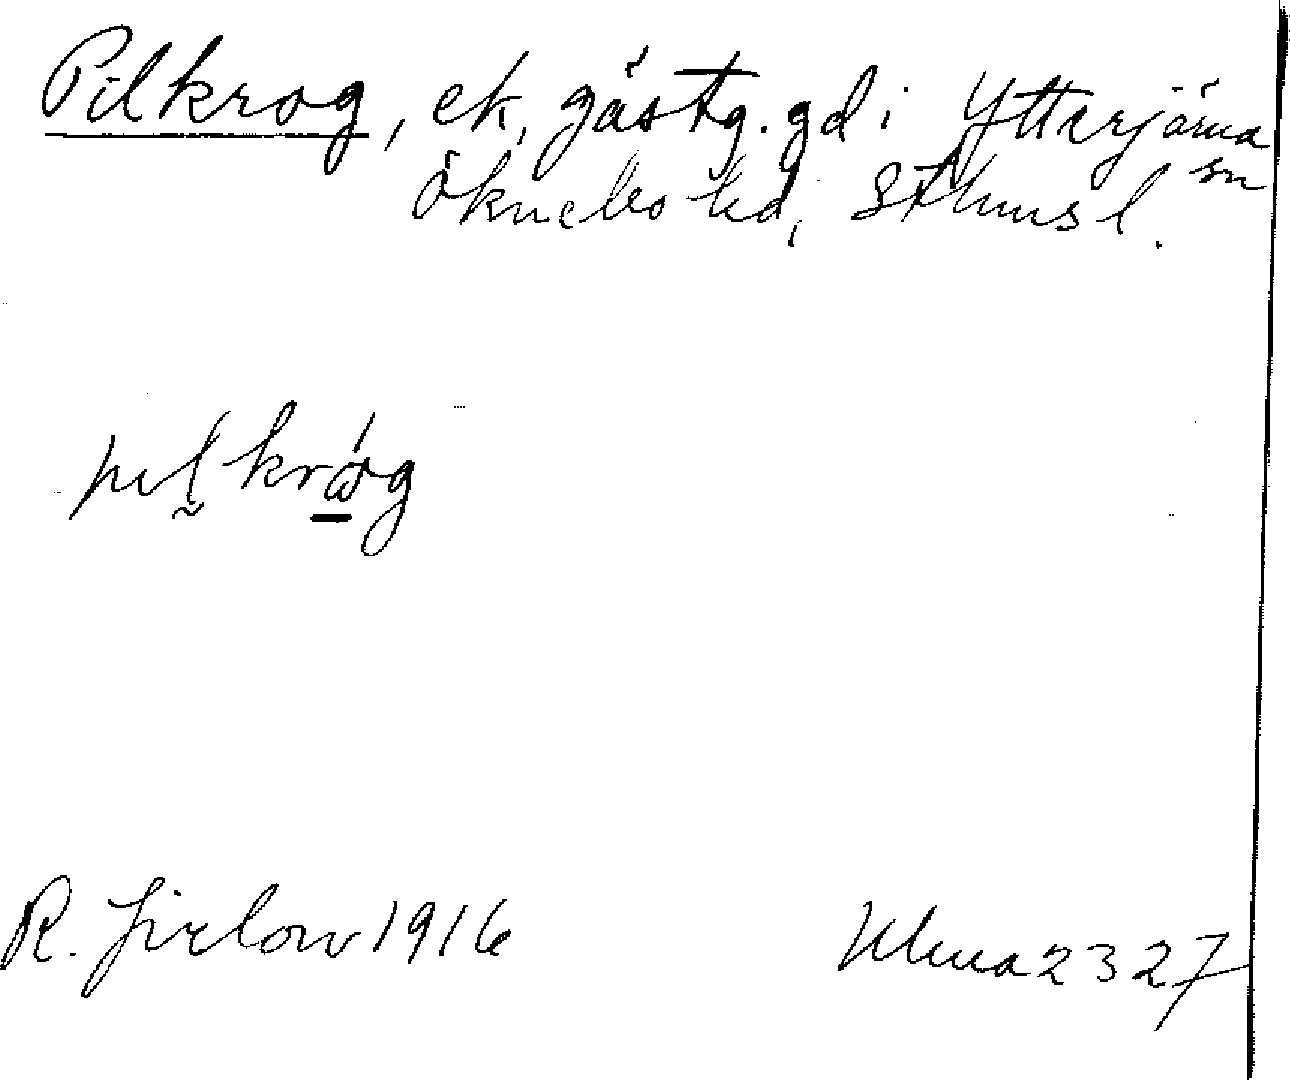 Pilkrog, ek, gästg.gd i Ytterjärna
sn
Öknebo hd, Sthms l.
pilkróg
R. Jirlow 1916
Ulma 2327